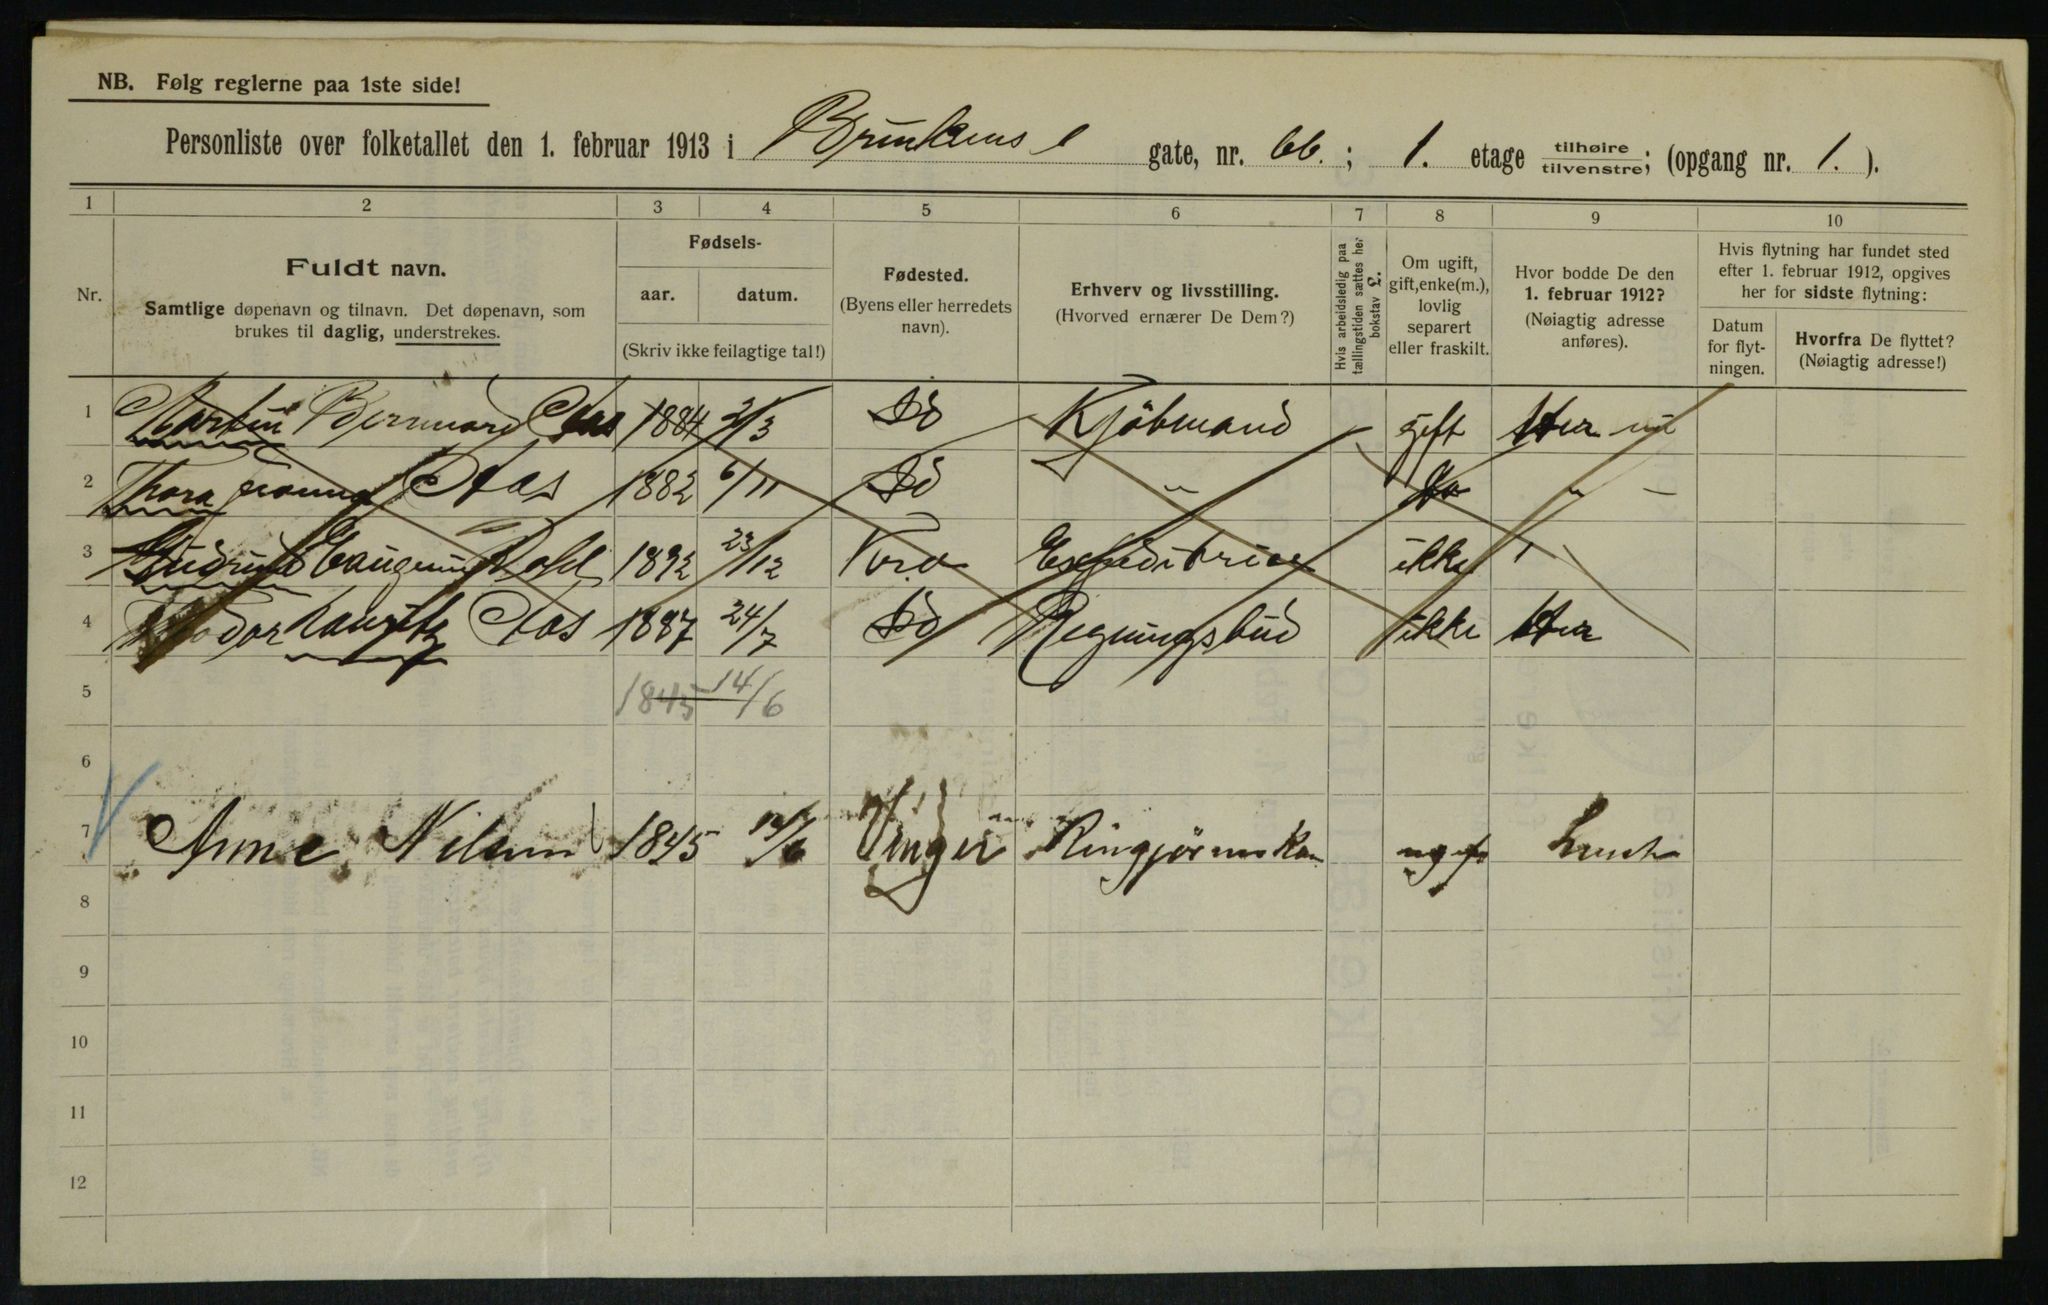 NB. Følg reglerne paa 1ste side!
Personliste over folketallet den 1. februar 1913 i Brinkens gate, nr. 66.; 1. etage tilhøire/tilvenstre; (opgang nr. 1.).
1 2 3 4 5 6 7 8 9 10
Nr.
Fuldt navn.
Samtlige døpenavn og tilnavn. Det døpenavn, som
brukes til daglig, understrekes.
Fødsels-
aar. datum.
(Skriv ikke feilagtige tal!)
Fødested.
(Byens eller herredets
navn).
Erhverv og livsstilling.
(Hvorved ernærer De Dem?)
Hvis arbeidsledig paa
tællingstiden sættes her
bokstav L.
Om ugift,
gift, enke(m.),
lovlig
separert
eller fraskilt.
Hvor bodde De den
1. februar 1912?
(Nøiagtig adresse
anføres).
Hvis flytning har fundet sted
efter 1. februar 1912, opgives
her for sidste flytning:
Datum
for flyt-
ningen.
Hvorfra De flyttet?
(Nøiagtig adresse!)
1 Martin Aas 1884 2/3 Kjöbmand gift Her
2 Thora Aas 1882 6/11 "
3 1892 23/12 ikke
4 Aas 1887 24/7 Regningsbud ikke Her
5 1845 14/6
6
7 Anne Nilsen 1845 Vinger
8
9
10
11
12